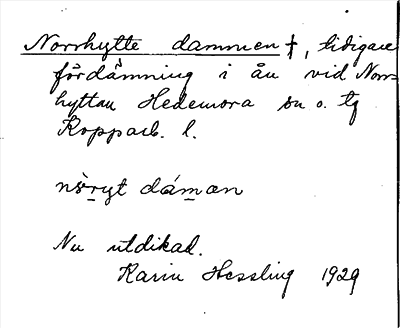 Norrhytte dammen †, tidigare
fördämning i ån vid Norr-
hyttan Hedemora sn o. tg
Kopparb. l.
nò̱ryt dám̱an
Nu utdikad.
Karin Hessling 1929